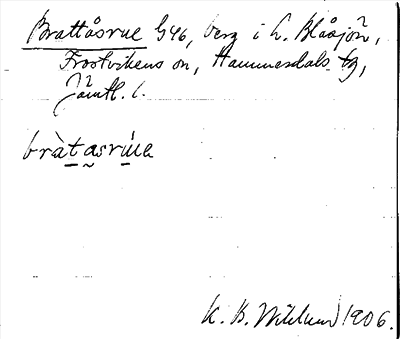 Brattåsrue G46, berg i L. Blåsjön,
Frostvikens sn, Hammerdals tg,
Jämtl. l.
bràtasrúe
K. B. Wiklund 1906.